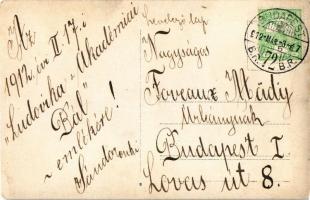 Az
1912. évi II. 17.-i
"Ludovika" - Akadémiai
Bál"
- emlékére!
Sándor
Nagyságos
Foveaux Mády
Urleánynak
Budapest I.
Lovas út 8.
BUDAPEST
72